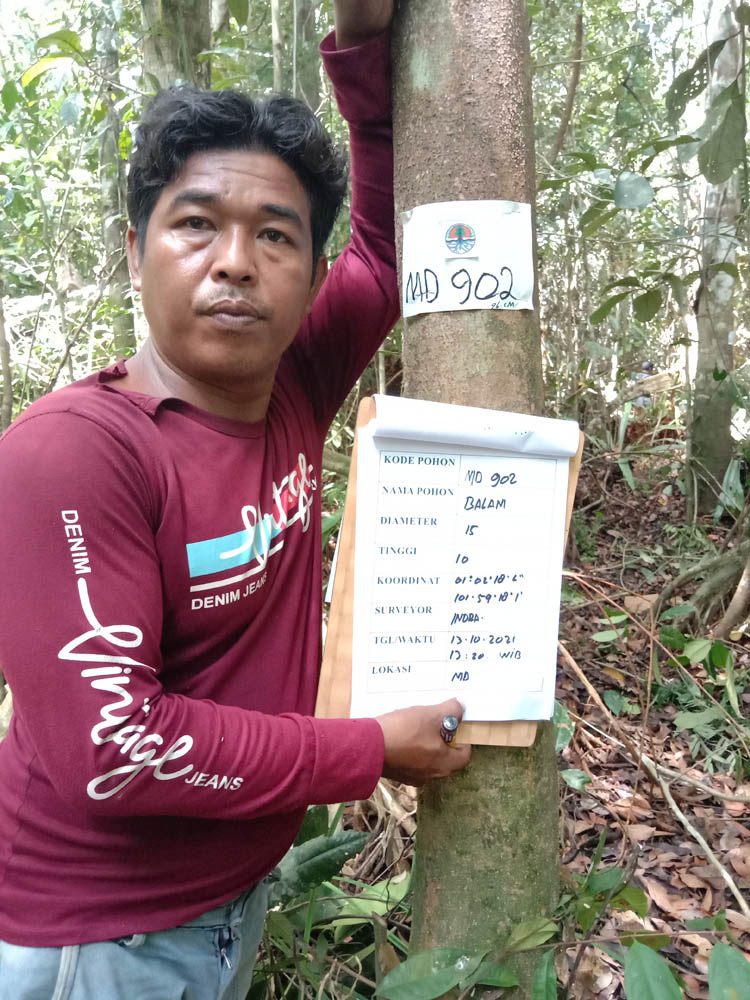 MD 902
96 CM
KODE POHON MD 902
NAMA POHON BALAM
DIAMETER 15
TINGGI 10
KOORDINAT 01°02'18.6"
101°59'18.1'
SURVEYOR INDRA.
TGL/WAKTU 13.10.2021
13.20. WIB
LOKASI MD
Vintage
DENIM JEANS
DENIM Vintage JEANS